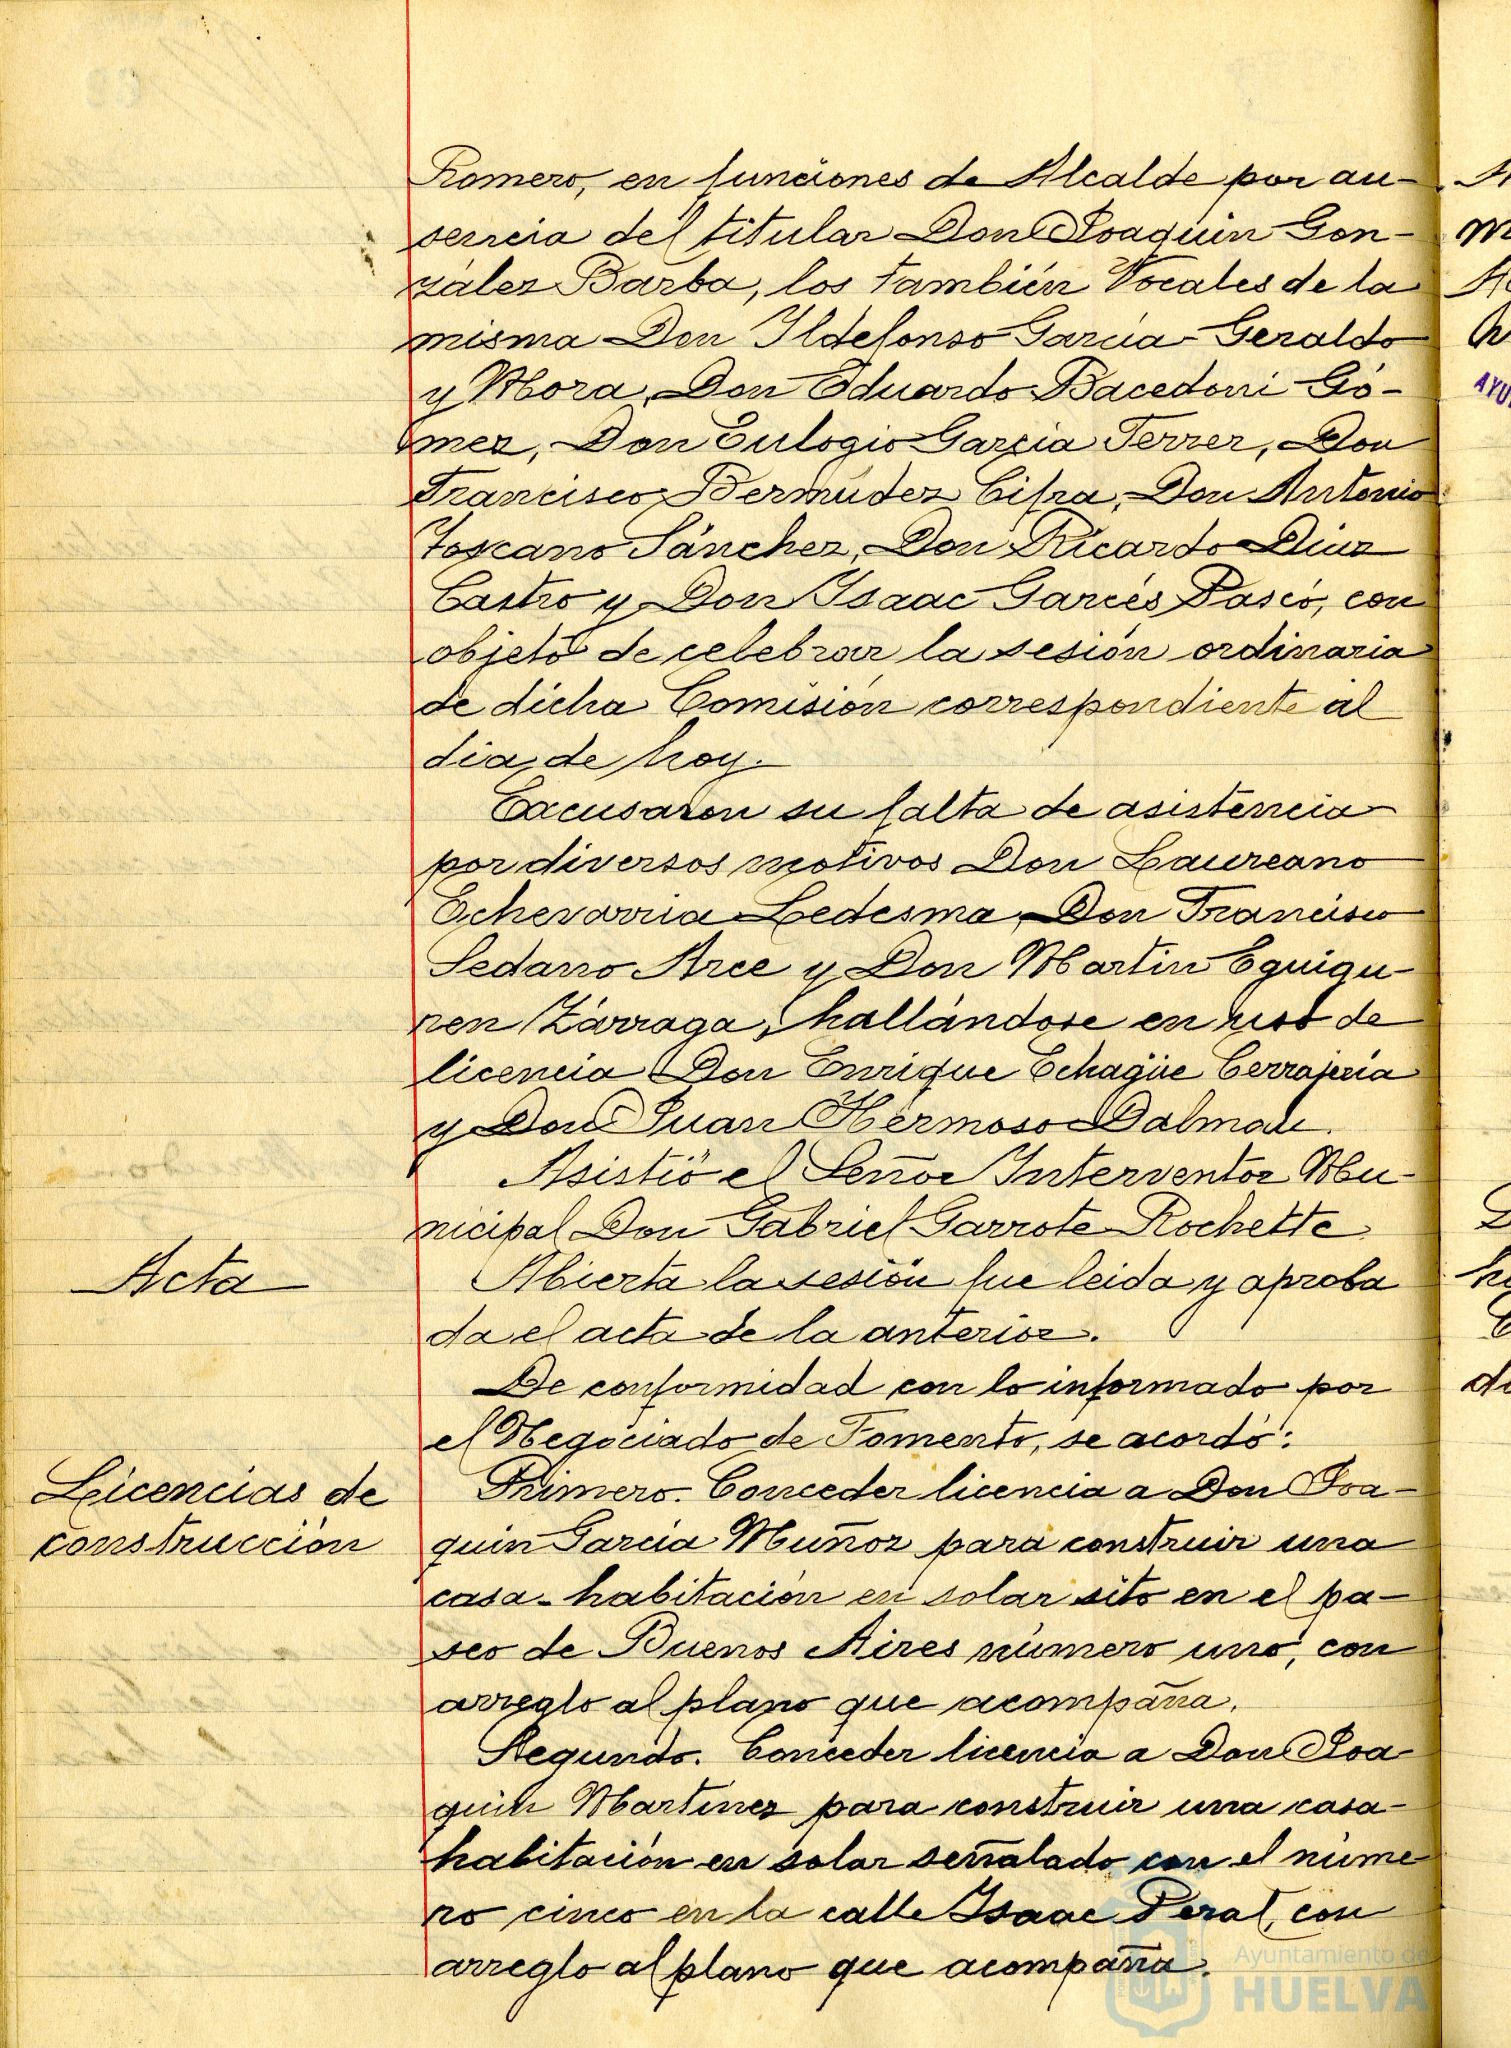 Romero, en funciones de Alcalde por au-
sencia del titular Don Joaquin Gon-
zález Barba, los también Vocales de la
misma Don Ildefonso García-Geraldo
y Mora, Don Eduardo Bacedoni Gó-
mez, Don Eulogio García Ferrer, Don
Francisco Bermúdez Cifra, Don Antonio
Toscano Sánchez, Don Ricardo Diaz
Castro y Don Isaac Garcés Pascó, con
objeto de celebrar la sesión ordinaria
de dicha Comisión correspondiente al
dia de hoy.
Excusaron su falta de asistencia
por diversos motivos Don Laureano
Echevarria Ledesma, Don Francisco
Sedano Arce y Don Martin Eguigu-
ren Zárraga, hallándose en uso de
licencia Don Enrique Echagüe Cerrajería
y Don Juan Hermoso Dalmau.
Asistió el Señor Interventor Mu-
nicipal Don Gabriel Garrote Rochette.
Acta
Abierta la sesión fue leida y aproba
da el acta de la anterior.
De conformidad con lo informado por
el Negociado de Fomento, se acordó:
Licencias de
construcción
Primero. Conceder licencia a Don Joa-
quin García Muñoz para construir una
casa-habitación en solar sito en el pa-
seo de Buenos Aires número uno, con
arreglo al plano que acompaña.
Segundo. Conceder licencia a Don Joa-
quin Martinez para construir una casa-
habitación en solar señalado con el núme-
ro cinco en la calle Isaac Peral, con
arreglo al plano que acompaña.
Ayuntamiento de
HUELVA